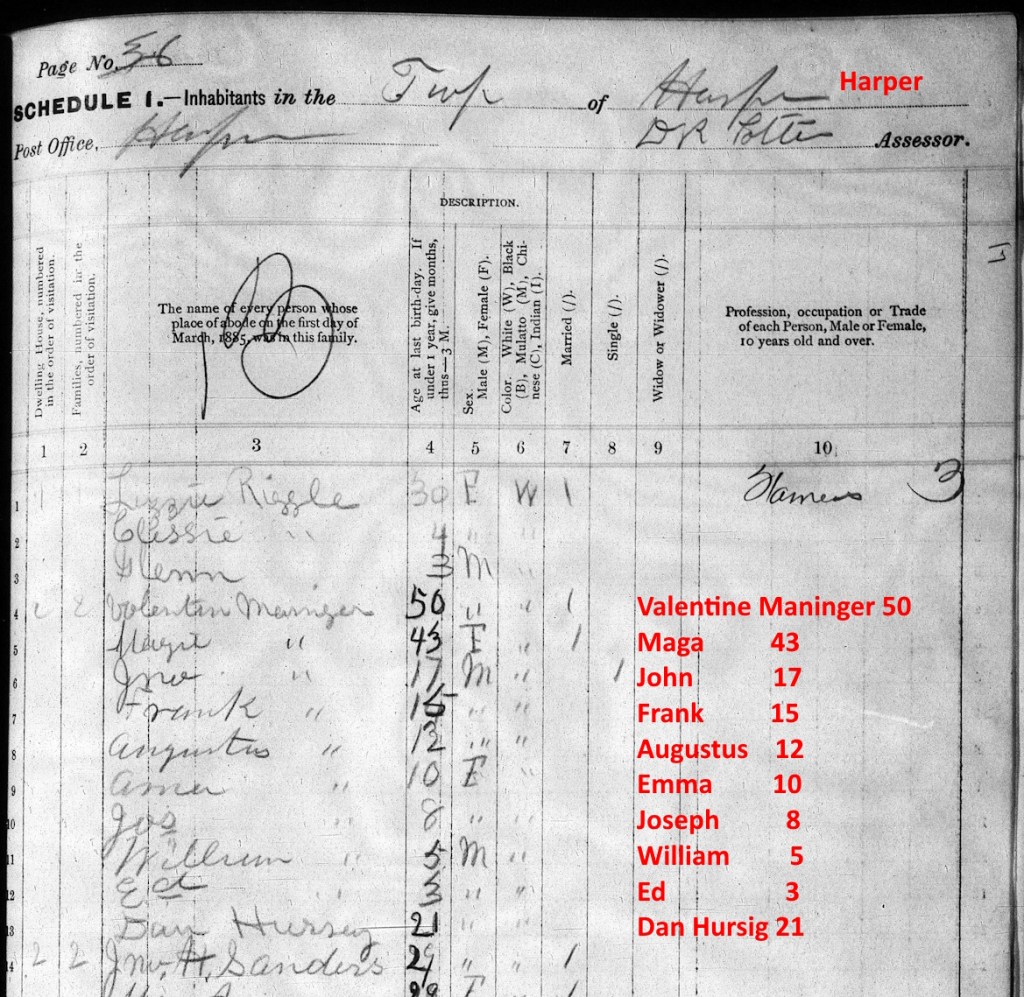 Page No. 56
SCHEDULE 1.—Inhabitants in the Twp of Harper Harper
Post Office, Harper D R Potter Assessor.
DESCRIPTION.
Dwelling House, numbered in the order of visitation.
Families, numbered in the order of visitation.
The name of every person whose place of abode on the first day of March, 1885, was in this family.
Age at last birth-day. If under 1 year, give months, thus—3 M.
Sex. Male (M), Female (F).
Color. White (W), Black (B), Mulatto (M), Chinese (C), Indian (I).
Married (/).
Single (/).
Widow or Widower (/).
Profession, occupation or Trade of each Person, Male or Female, 10 years old and over.
1 2 3 4 5 6 7 8 9 10
1 1 1 Lizzie Riggle 30 F W 1 3
2 Clessie " 4 " "
3 Glenn 3 M "
4 2 2 Valentin Maninger 50 " " / Valentine Maninger 50
5 " 43 F " / Maga 43
6 Jno " 17 M " / John 17
7 Frank " 15 " " Frank 15
8 Augustus " 12 " " Augustus 12
9 " 10 F " Emma 10
10 Jos " 8 " " Joseph 8
11 William " 5 M " William 5
12 Ed " 3 " " Ed 3
13 Dan Hursey 21 " " Dan Hursig 21
14 2 2 Jno. H. Sanders " " /
F /